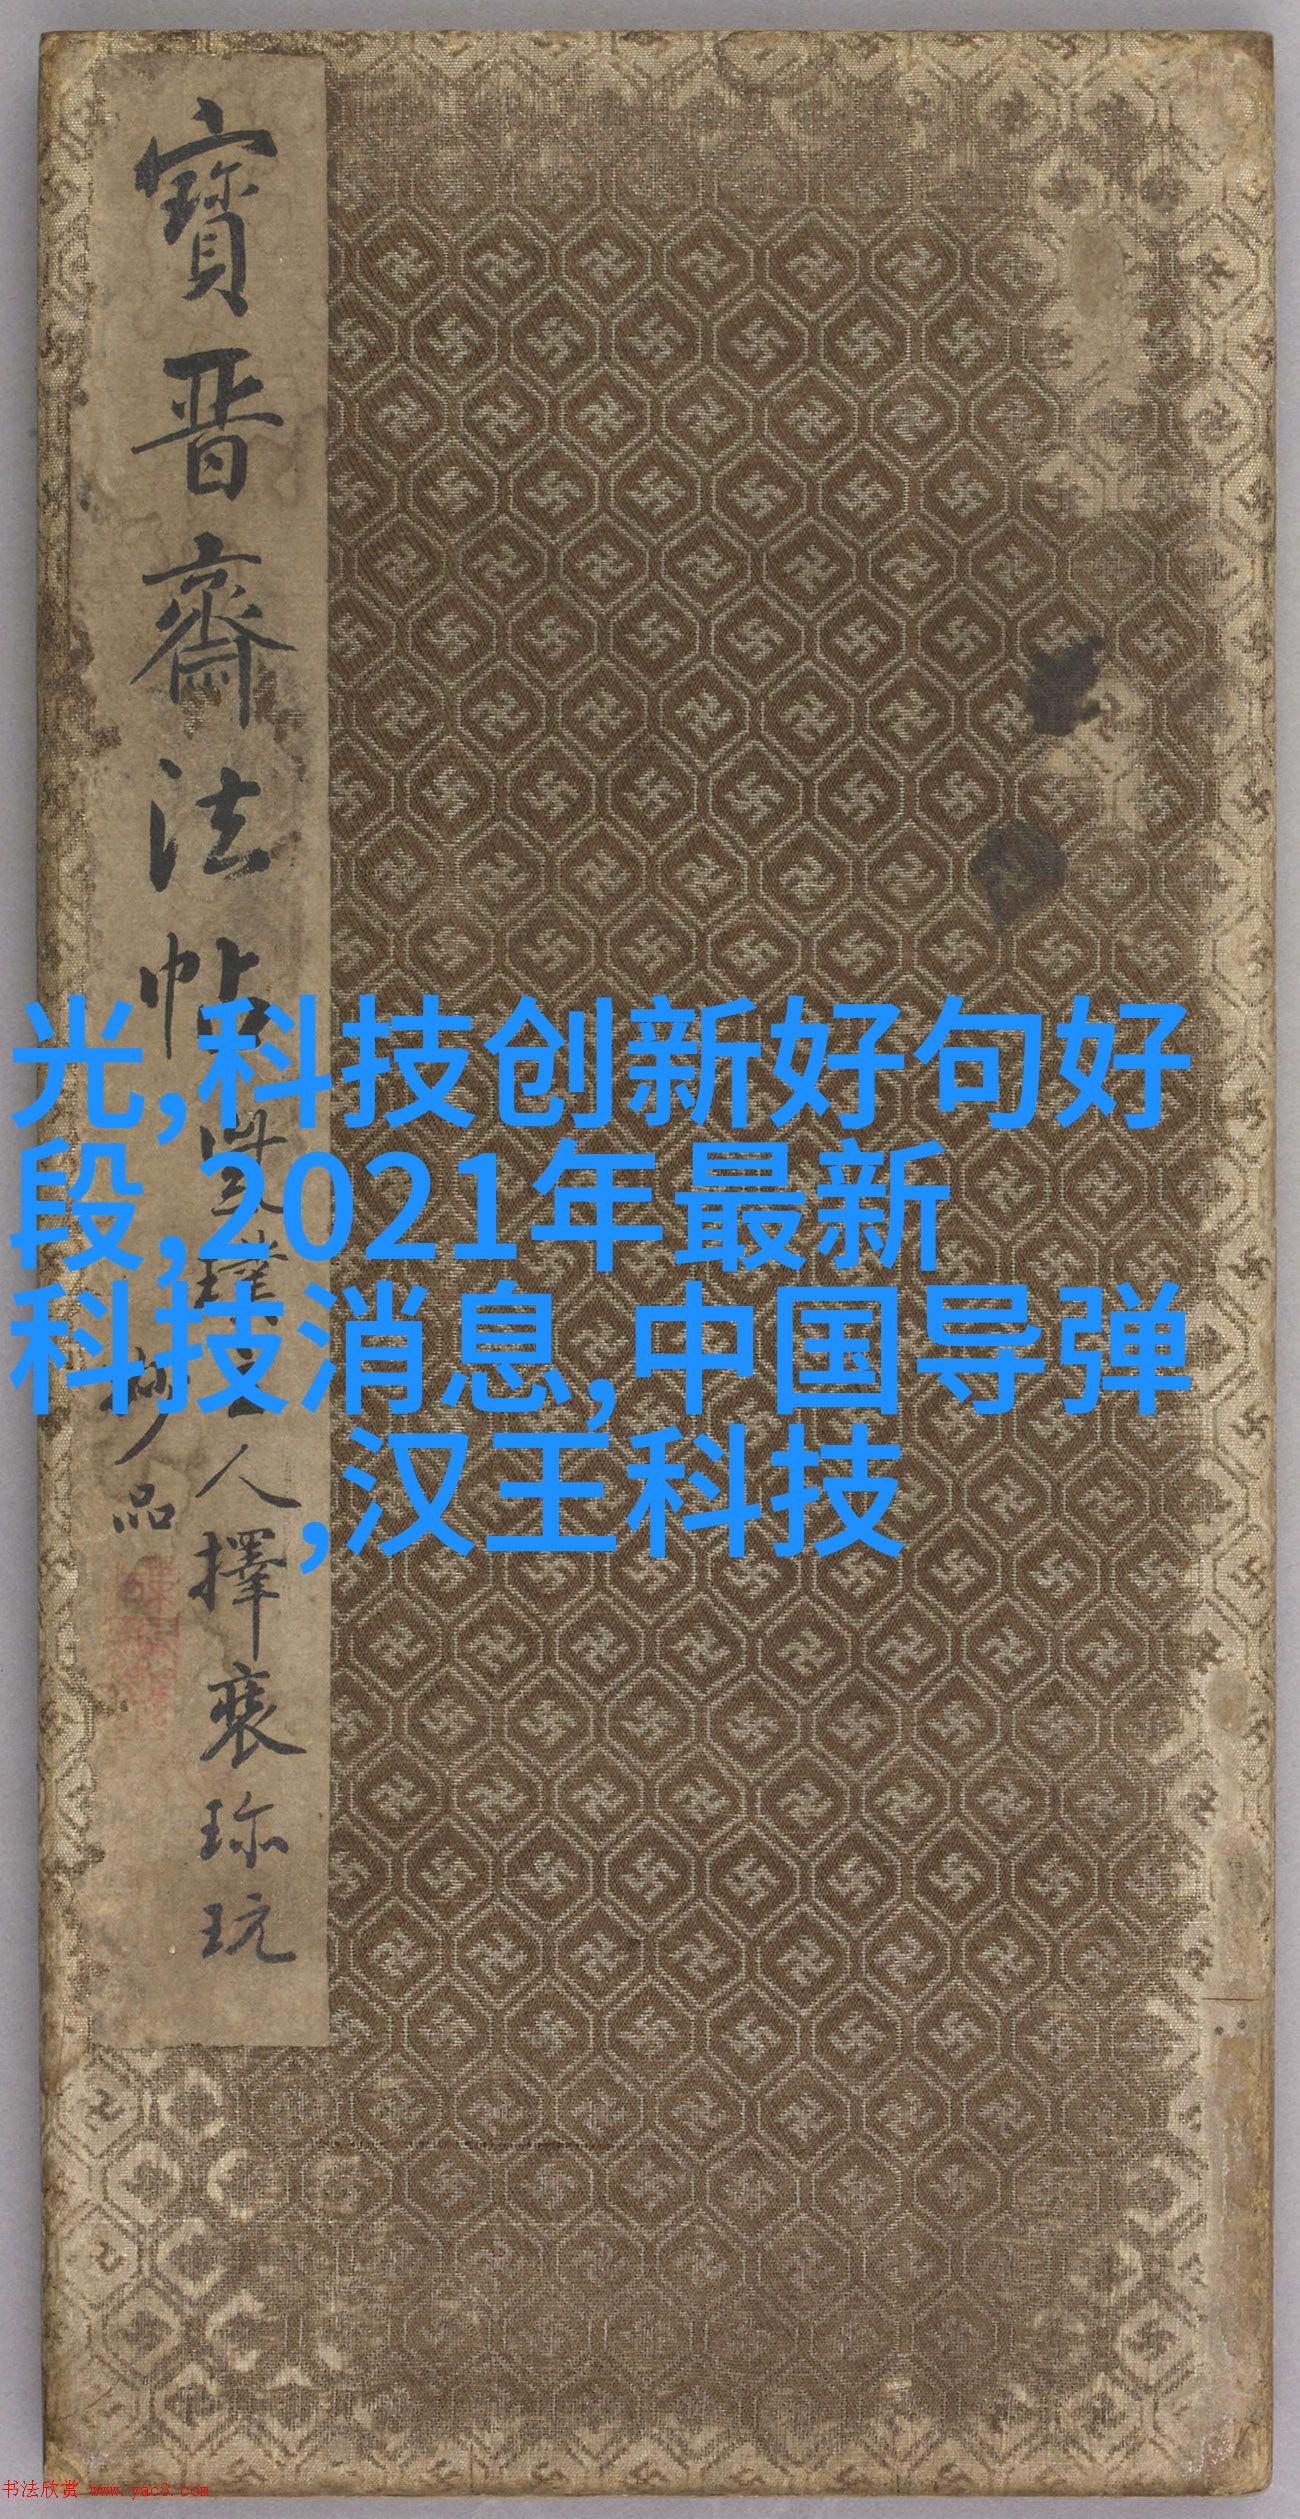 寳晋齋法帖
人擇裘珎玩
妙品
光,科技创新好句好
段,2021年最新
科技消息,中国导弹
,汉王科技
书法欣赏 www.yac8.com